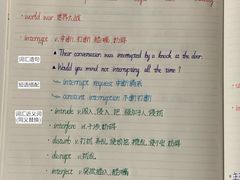 · world war 世界大战
· interrupt v.中断,打断 插嘴,妨碍
♠ Their conversation was interrupted by a knock at the door.
词汇造句
♠ Would you mind not interrupting all the time?
短语搭配
interrupt request 中断请求
constant interruption 不断打断
词汇近义词
(同义替换)
· intrude v.闯入,侵入,把
· interfere vi.干涉,妨碍
· disturb v.打扰
· disrupt v.扰乱
· interject v.突然插入,插嘴